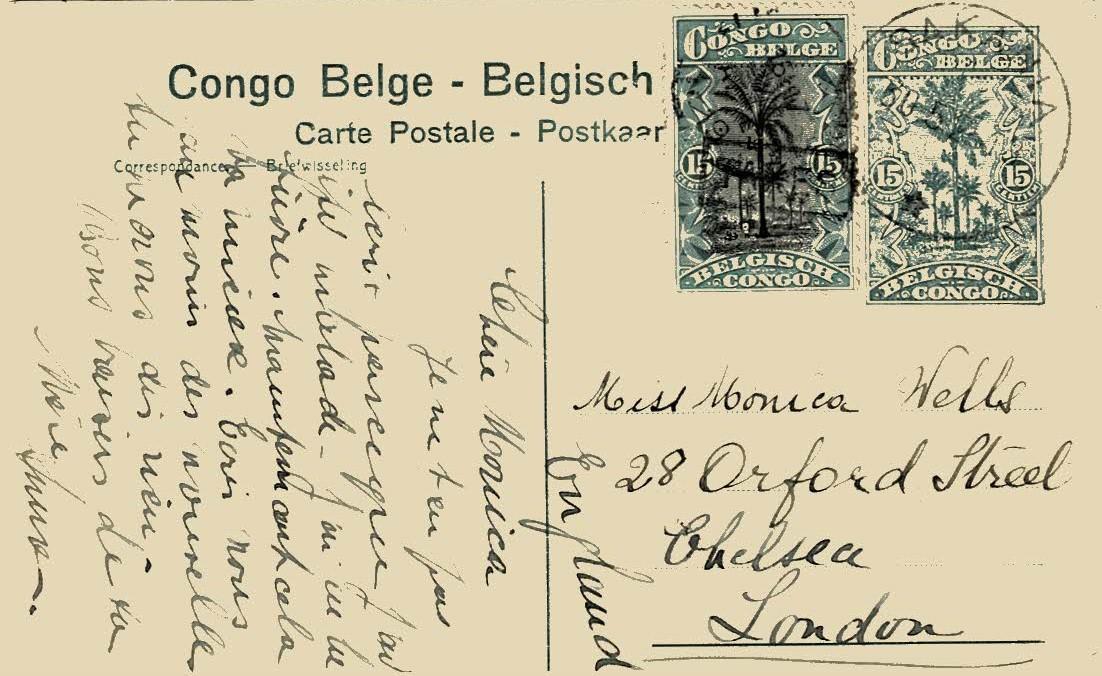 Congo Belge - Belgisch
Carte Postale - Postkaar
Correspondance Briefwisseling
CONGO
BELGE
15
15
BELGISCH
CONGO
CONGO
BELGE
15
15
BELGISCH
CONGO
SAKANIA
Chère Monica
Je ne pas
écrit parceque j'ai
été malade - J'ai eu la
fièvre. Maintenant cela
va mieux. Ecris nous
au moins des nouvelles
tu nous dis rien
Bons baisers de ta
Miss Monica Wells
28 Orford Street
Chelsea
London
England